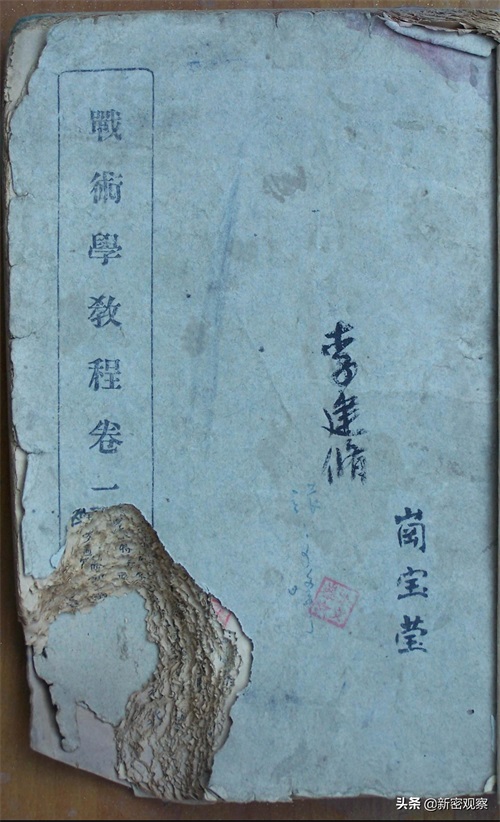 戰術學敎程卷一
李建脩
崗宝莹
头条 @新密观察